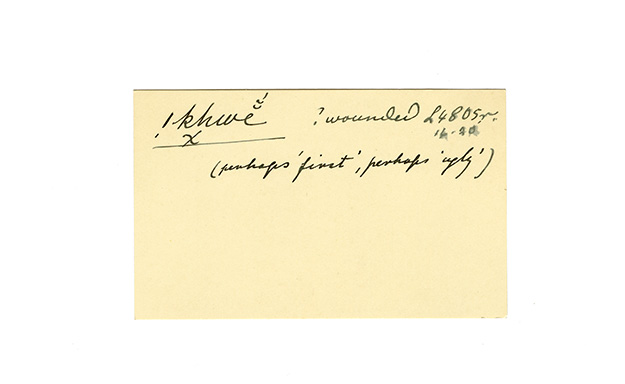 !khwĕ́ ? wounded L4805r.
x
(perhaps 'first', perhaps 'ugly')